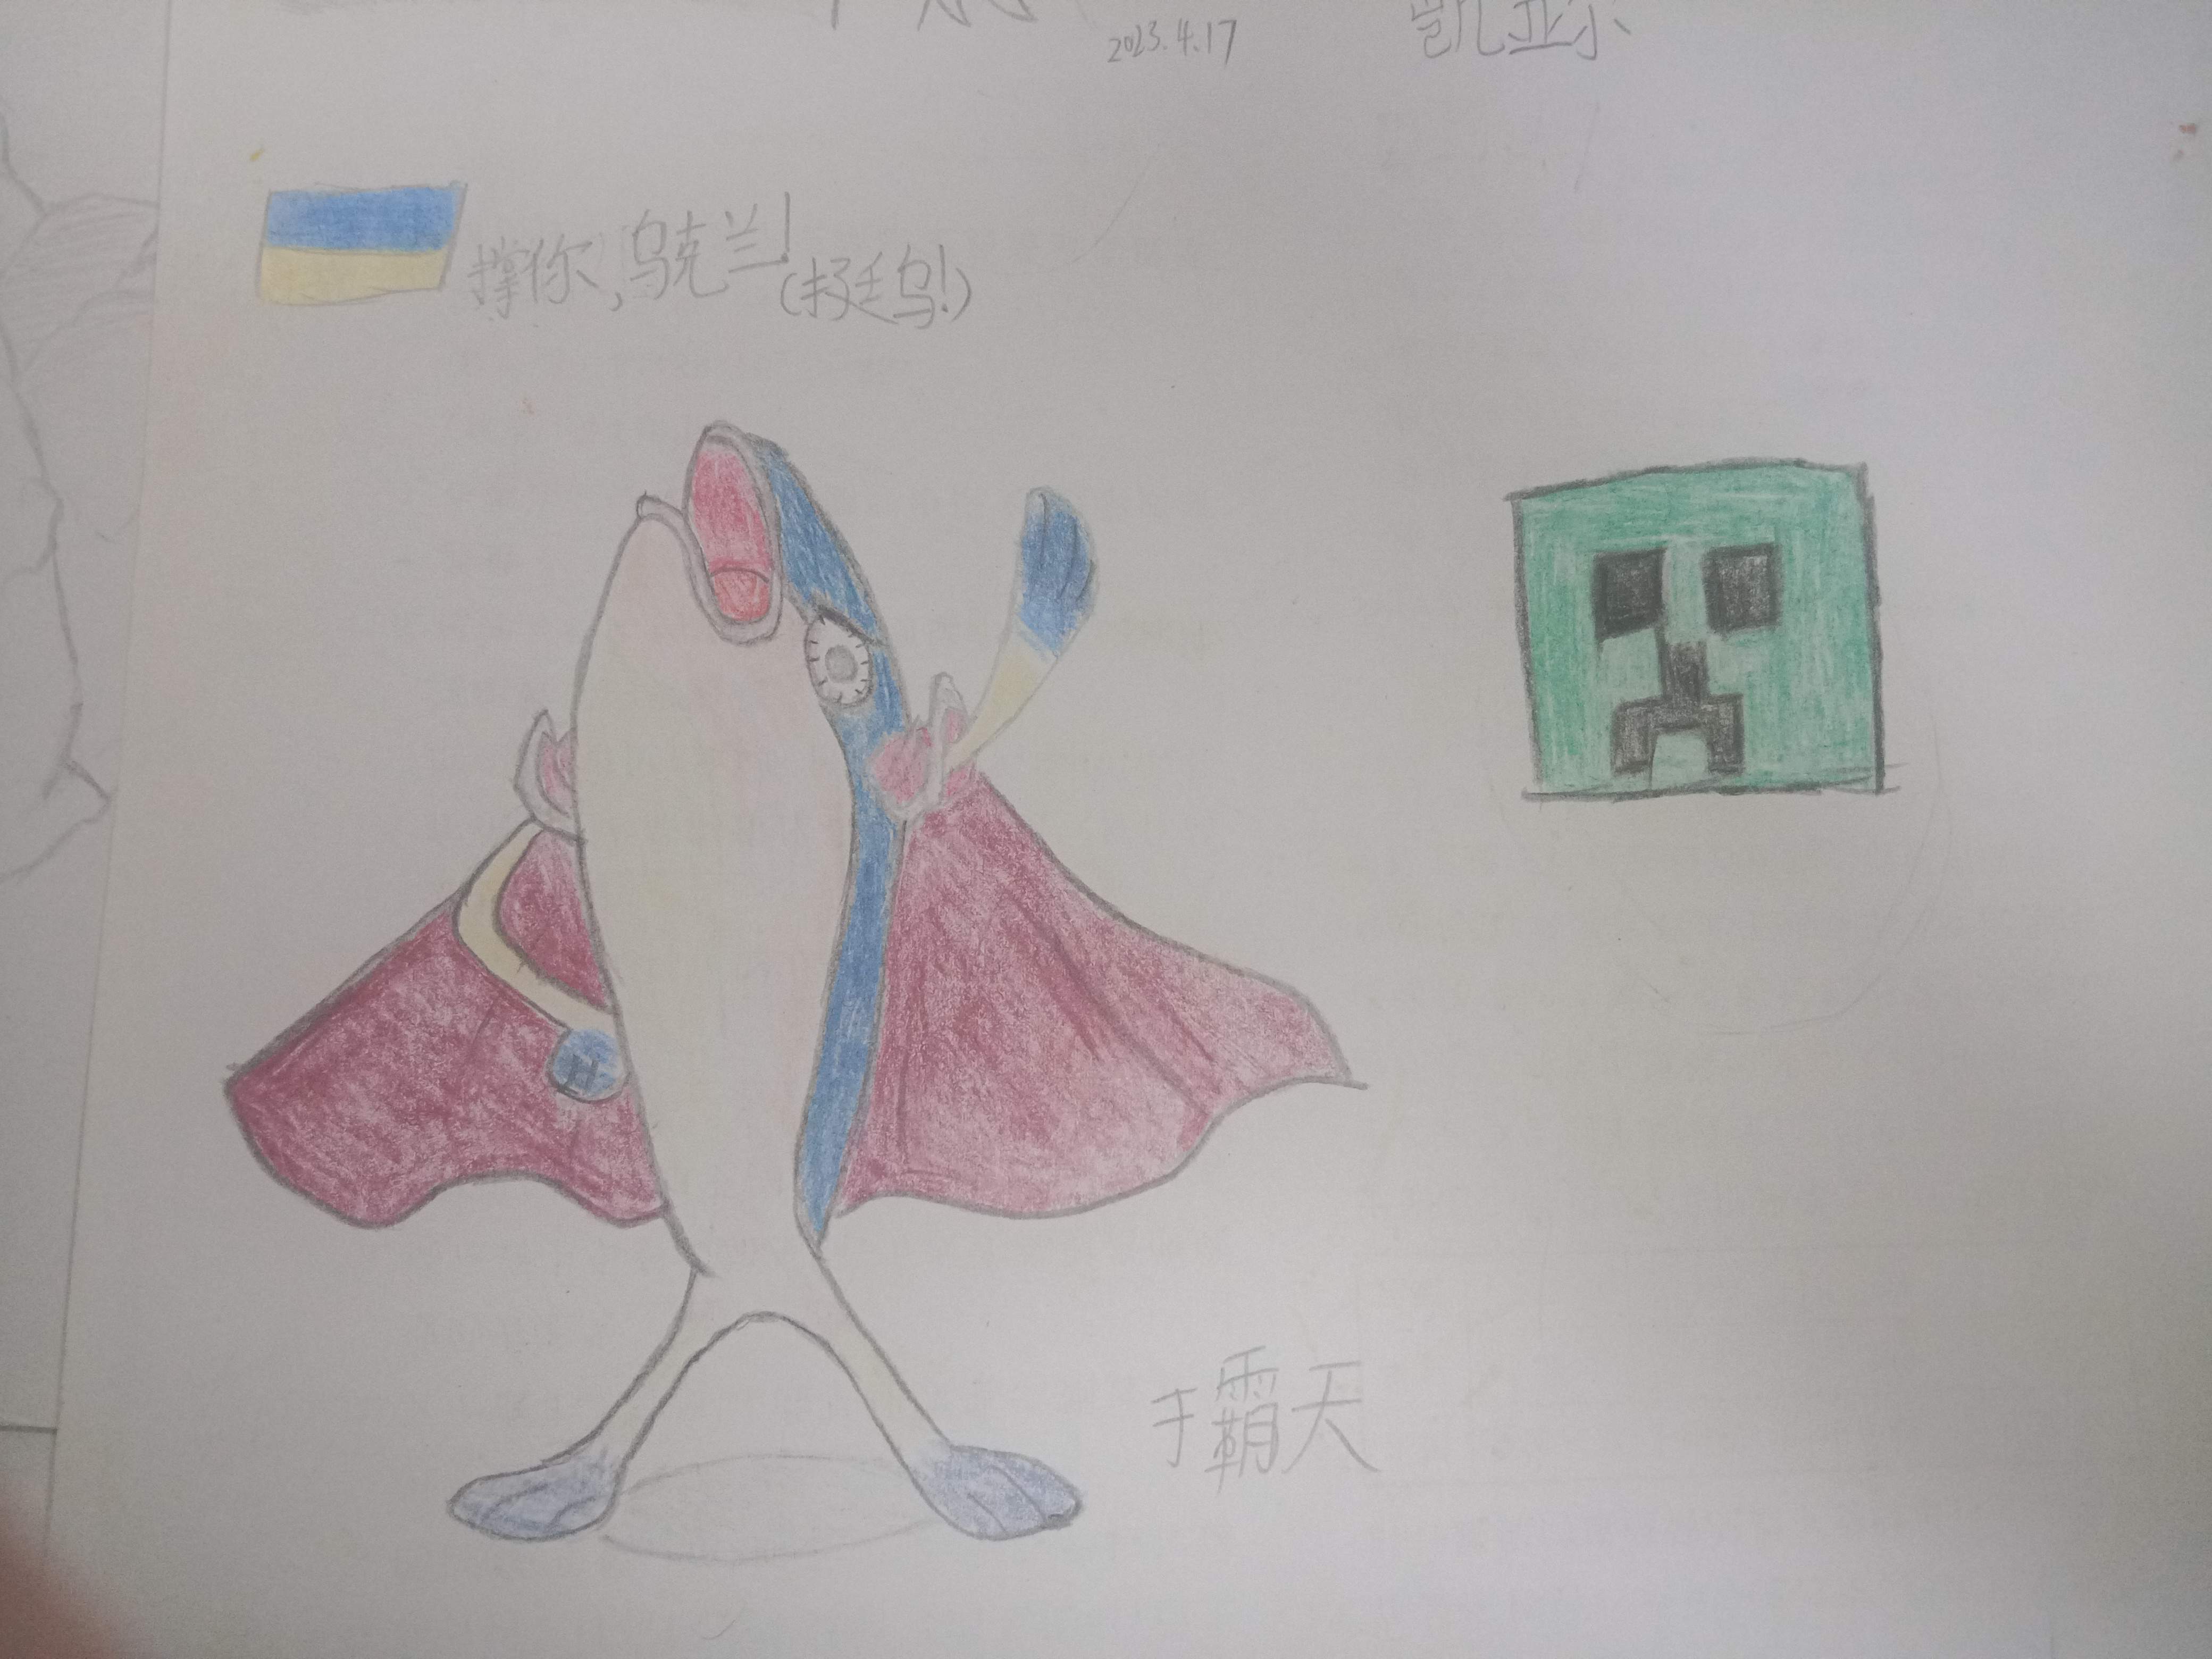 2023.4.17
凯亚尔
撑你,乌克兰!
(挺乌!)
于霸天